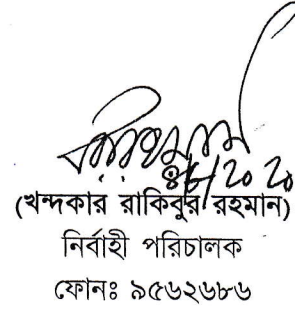 (খন্দকার রাকিবুর রহমান)
নির্বাহী পরিচালক
ফোনঃ ৯৫৬২৬৮৬